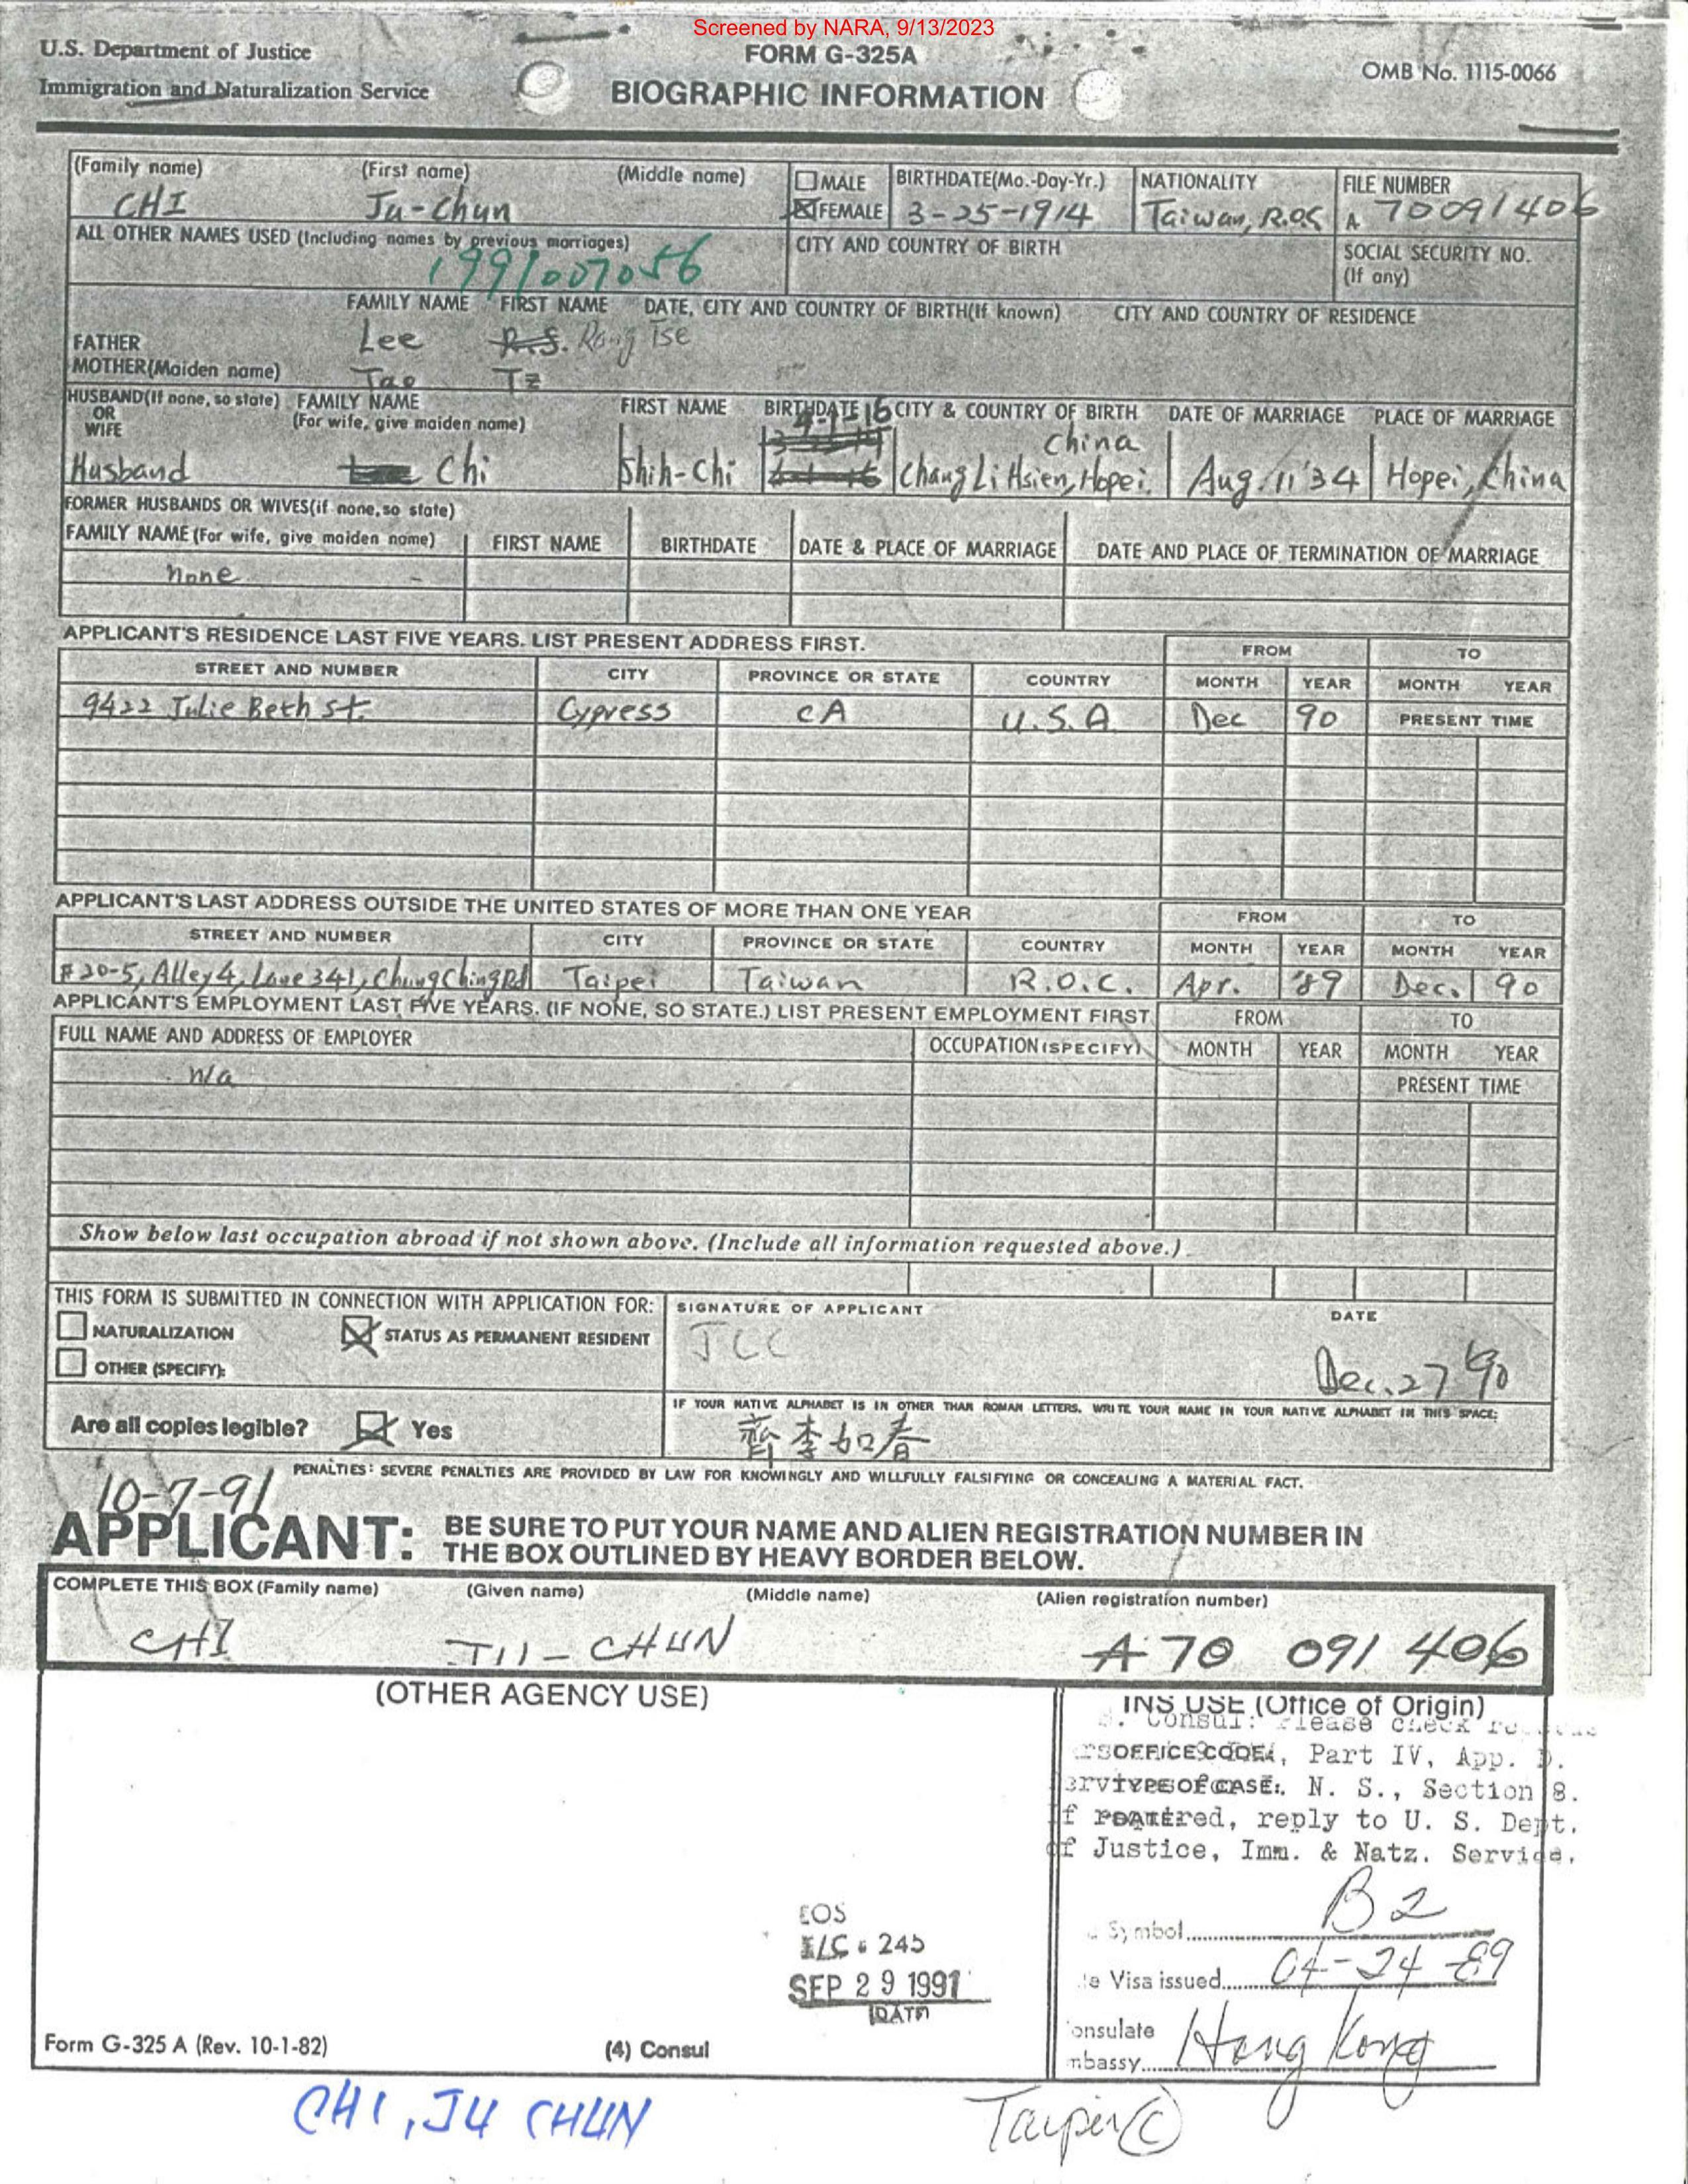 Screened by NARA, 9/13/2023
U.S. Department of Justice
Immigration and Naturalization Service
FORM G-325A
BIOGRAPHIC INFORMATION
OMB No. 1115-0066
(Family name) (First name) (Middle name)
CHI Ju-Chun
☐ MALE
☒ FEMALE
BIRTHDATE(Mo.-Day-Yr.)
3-25-1914
NATIONALITY
Taiwan, R.O.C
FILE NUMBER
A 70091406
ALL OTHER NAMES USED (Including names by previous marriages)
1991007056
CITY AND COUNTRY OF BIRTH
SOCIAL SECURITY NO.
(If any)
FAMILY NAME FIRST NAME DATE, CITY AND COUNTRY OF BIRTH(If known) CITY AND COUNTRY OF RESIDENCE
FATHER Lee R.S. Rong Tse
MOTHER(Maiden name) Tao Tz
HUSBAND(If none, so state) FAMILY NAME FIRST NAME BIRTHDATE CITY & COUNTRY OF BIRTH DATE OF MARRIAGE PLACE OF MARRIAGE
OR (For wife, give maiden name)
WIFE
4-1-16 China
Husband Chi Shih-Chi Chang Li Hsien, Hopei. Aug. 11 '34 Hopei, China
FORMER HUSBANDS OR WIVES(if none, so state)
FAMILY NAME (For wife, give maiden name) FIRST NAME BIRTHDATE DATE & PLACE OF MARRIAGE DATE AND PLACE OF TERMINATION OF MARRIAGE
none
APPLICANT'S RESIDENCE LAST FIVE YEARS. LIST PRESENT ADDRESS FIRST.
FROM TO
STREET AND NUMBER CITY PROVINCE OR STATE COUNTRY MONTH YEAR MONTH YEAR
9422 Julie Beth St. Cypress CA U.S.A Dec 90 PRESENT TIME
APPLICANT'S LAST ADDRESS OUTSIDE THE UNITED STATES OF MORE THAN ONE YEAR
FROM TO
STREET AND NUMBER CITY PROVINCE OR STATE COUNTRY MONTH YEAR MONTH YEAR
#20-5, Alley 4, Lane 341, Chung Ching Rd Taipei Taiwan R.O.C. Apr. '89 Dec. 90
APPLICANT'S EMPLOYMENT LAST FIVE YEARS. (IF NONE, SO STATE.) LIST PRESENT EMPLOYMENT FIRST
FROM TO
FULL NAME AND ADDRESS OF EMPLOYER OCCUPATION (SPECIFY) MONTH YEAR MONTH YEAR
n/a PRESENT TIME
Show below last occupation abroad if not shown above. (Include all information requested above.)
THIS FORM IS SUBMITTED IN CONNECTION WITH APPLICATION FOR:
☐ NATURALIZATION ☒ STATUS AS PERMANENT RESIDENT
☐ OTHER (SPECIFY):
SIGNATURE OF APPLICANT DATE
JCC Dec. 27 '90
Are all copies legible? ☒ Yes
IF YOUR NATIVE ALPHABET IS IN OTHER THAN ROMAN LETTERS, WRITE YOUR NAME IN YOUR NATIVE ALPHABET IN THIS SPACE:
齊李如春
PENALTIES: SEVERE PENALTIES ARE PROVIDED BY LAW FOR KNOWINGLY AND WILLFULLY FALSIFYING OR CONCEALING A MATERIAL FACT.
10-7-91
APPLICANT: BE SURE TO PUT YOUR NAME AND ALIEN REGISTRATION NUMBER IN
THE BOX OUTLINED BY HEAVY BORDER BELOW.
COMPLETE THIS BOX (Family name) (Given name) (Middle name) (Alien registration number)
CHI JU-CHUN A 70 091 406
(OTHER AGENCY USE)
INS USE (Office of Origin)
Consul: Please check
OFFICE CODE: , Part IV, App.
TYPE OF CASE: N. S., Section 8.
required, reply to U. S. Dept.
of Justice, Imm. & Natz. Service.
Symbol B2
Visa issued 04-24-89
Hong Kong
EOS
245
SEP 29 1991
(DATE)
Form G-325 A (Rev. 10-1-82)
(4) Consul
CHI, JU CHUN
Taipei (C)